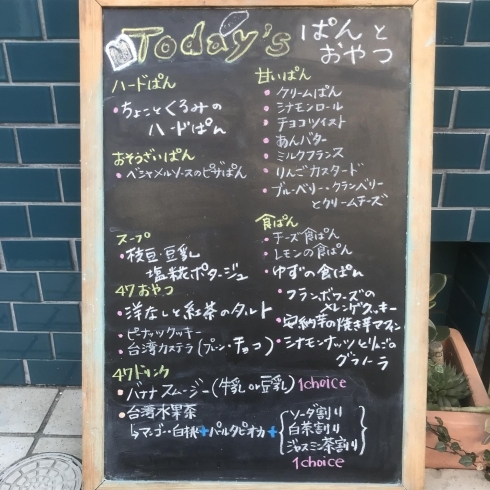 Today's ぱんと
おやつ
ハードぱん
・ちょことくるみの
ハードぱん
おそうざいぱん
・ベシャメルソースのピザぱん
スープ
・枝豆・豆乳
塩糀ポタージュ
47おやつ
・洋なしと紅茶のタルト
・ピーナッツクッキー
・台湾カステラ(プレーン・チョコ)
47ドリンク
・バナナスムージー(牛乳or豆乳) 1choice
・台湾水果茶
↳マンゴー・白桃+パールタピオカ+
ソーダ割り
白茶割り
ジャスミン茶割り
1choice
甘いぱん
・クリームぱん
・シナモンロール
・チョコツイスト
・あんバター
・ミルクフランス
・りんごカスタード
・ブルーベリー・クランベリー
とクリームチーズ
食ぱん
・チーズ食ぱん
・レモンの食ぱん
・ゆずの食ぱん
・フランボワーズの
メレンゲクッキー
・安納芋の焼き芋マフィン
・シナモンナッツとりんごの
グラノーラ